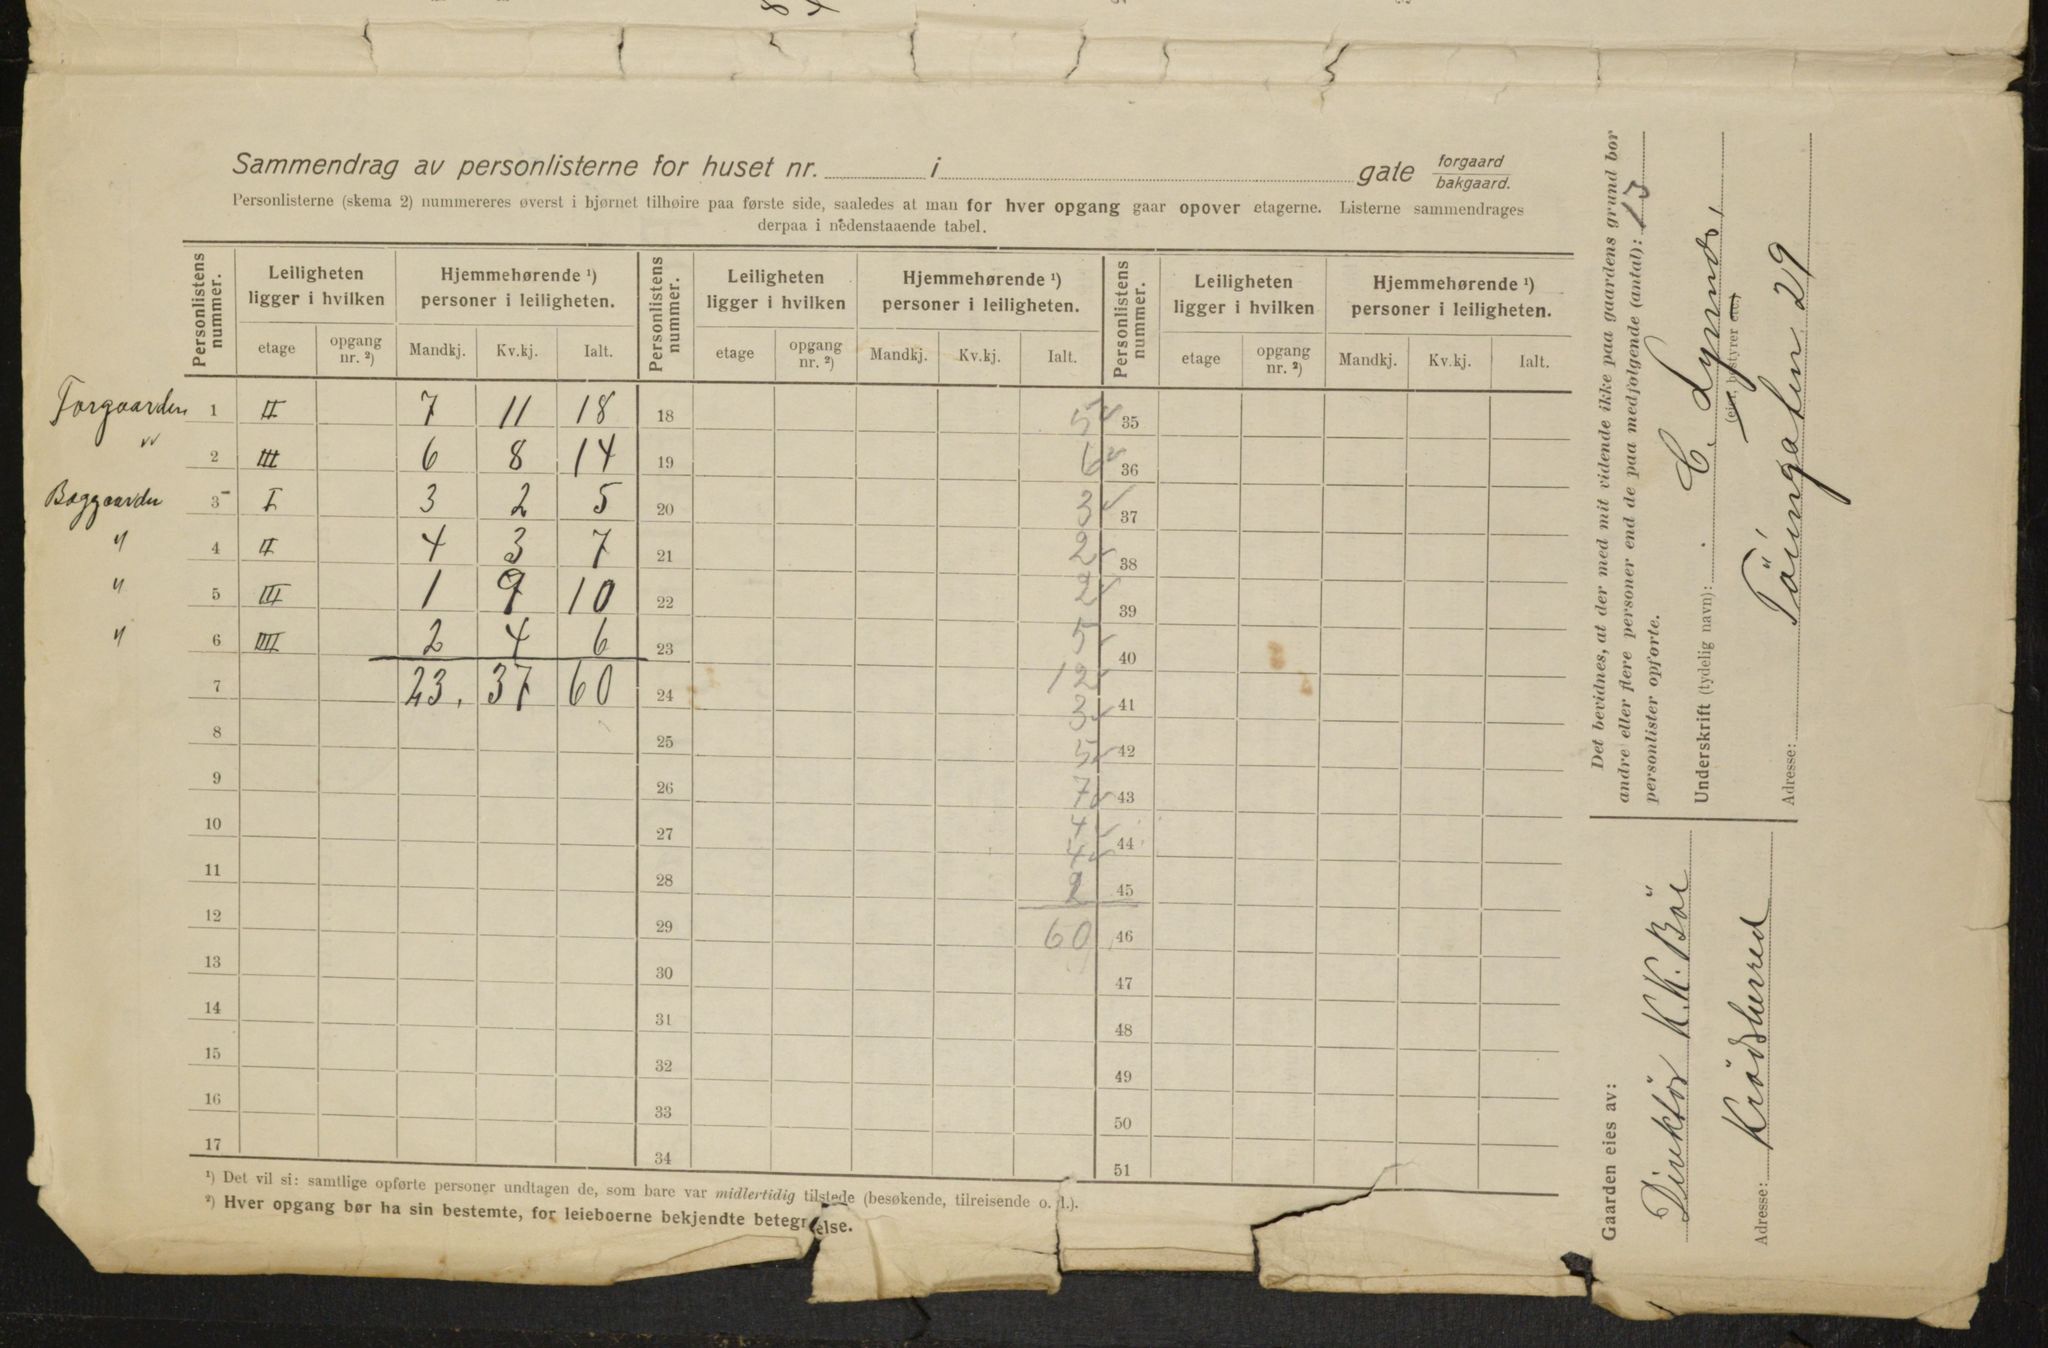 Sammendrag av personlisterne for huset nr. i gate forgaard
bakgaard.
Personlisterne (skema 2) nummereres øverst i hjørnet tilhøire paa første side, saaledes at man for hver opgang gaar opover etagerne. Listerne sammendrages
derpaa i nedenstaaende tabel.
Personlistens nummer. Leiligheten ligger i hvilken Hjemmehørende ¹) personer i leiligheten. Personlistens nummer. Leiligheten ligger i hvilken Hjemmehørende ¹) personer i leiligheten. Personlistens nummer. Leiligheten ligger i hvilken Hjemmehørende ¹) personer i leiligheten.
etage opgang nr. ²) Mandkj. Kv.kj. Ialt. etage opgang nr. ²) Mandkj. Kv.kj. Ialt. etage opgang nr. ²) Mandkj. Kv.kj. Ialt.
Forgaarden 1 II 7 11 18 18 5 35
" 2 III 6 8 14 19 6 36
Baggaarden 3 I 3 2 5 20 3 37
" 4 II 4 3 7 21 2 38
" 5 III 1 9 10 22 2 39
" 6 IIII 2 4 6 23 5 40
7 23. 37 60 24 12 41
8 25 3 42
9 26 5 43
10 27 7 44
11 28 4 45
12 29 4 46
13 30 2 47
14 31 60 48
15 32 49
16 33 50
17 34 51
¹) Det vil si: samtlige opførte personer undtagen de, som bare var midlertidig tilstede (besøkende, tilreisende o. l.).
²) Hver opgang bør ha sin bestemte, for leieboerne bekjendte betegnelse.
Det bevidnes, at der med mit vidende ikke paa gaardens grund bor
andre eller flere personer end de paa medfølgende (antal): 13
personlister opførte.
Underskrift (tydelig navn): C.
(eier, bestyrer etc.)
Adresse: 29
Gaarden eies av:
Direktör K. K. Böe
Adresse: Krödsherred